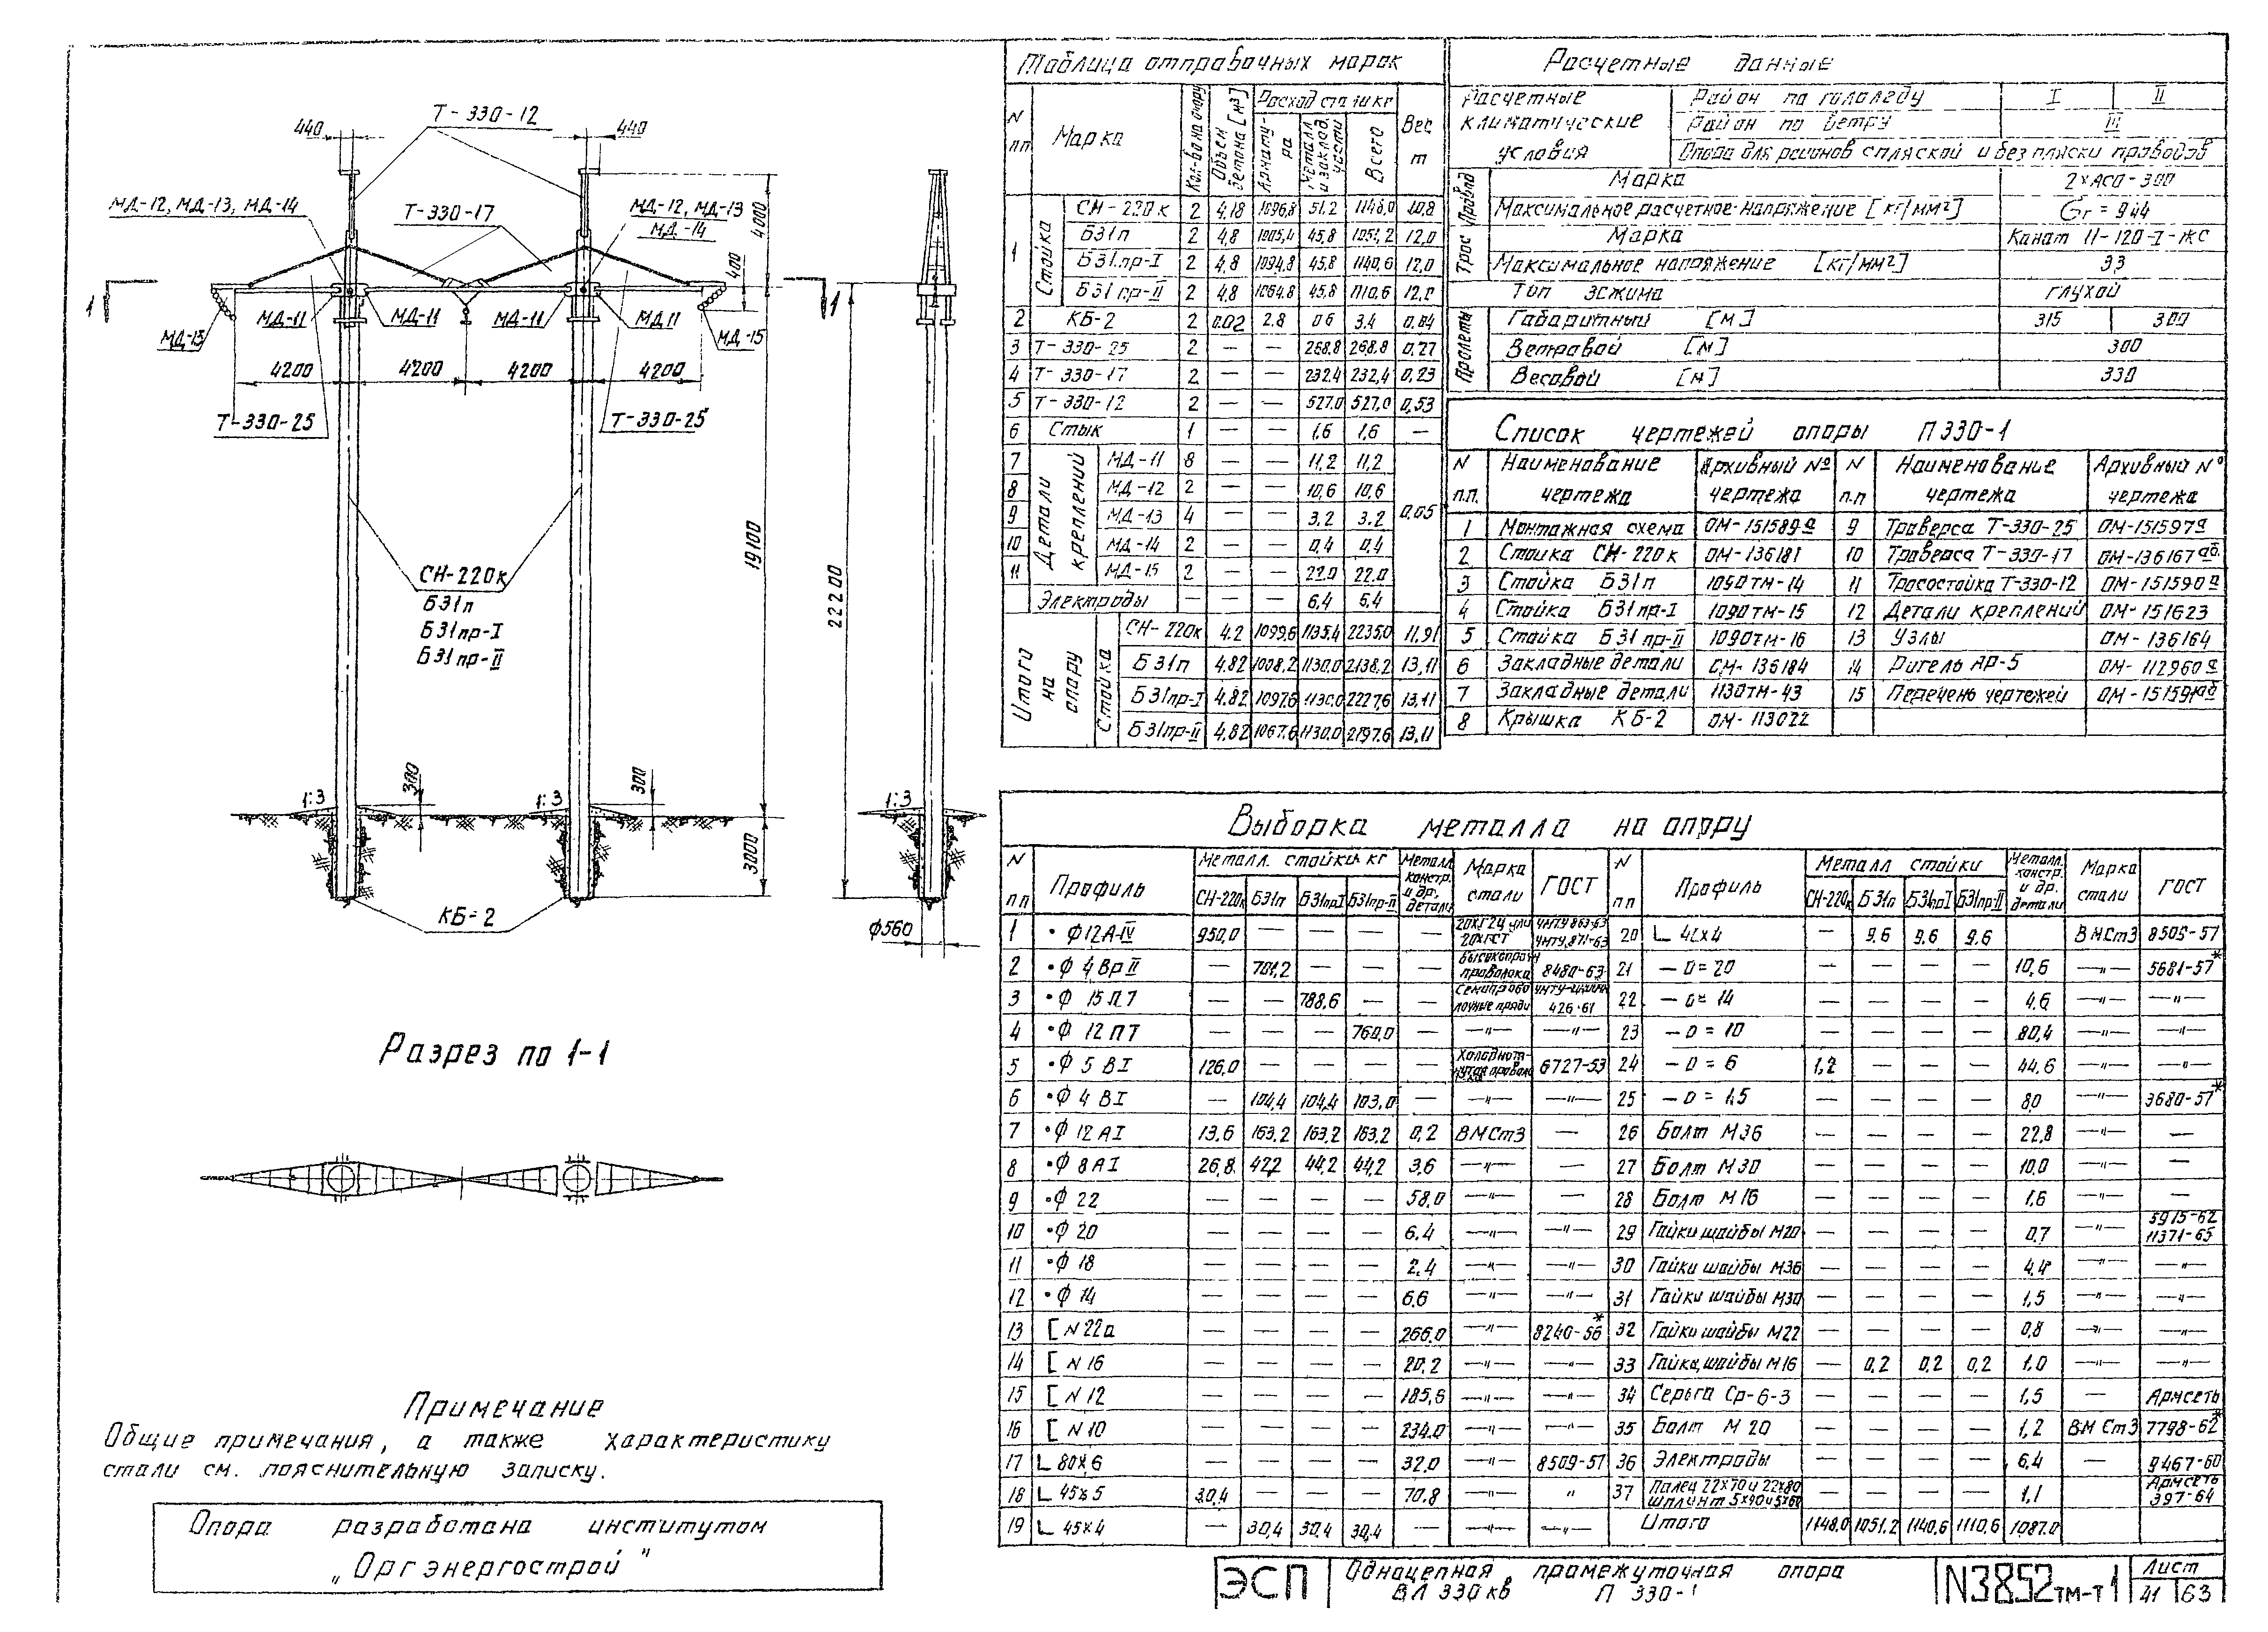 Т-330-12
440
440
МД-12, МД-13, МД-14
Т-330-17
МД-12, МД-13
МД-14
4000
400
1
1
МД-15
МД-11
МД-11
МД-11
МД 11
МД-15
4200
4200
4200
4200
Т-330-25
Т-330-25
СН-220к
Б31п
Б31пр-I
Б31пр-II
19100
22200
1:3
300
1:3
300
1:3
3000
КБ-2
ф560
Разрез по 1-1
Примечание
Общие примечания, а также характеристику
стали см. пояснительную записку.
Опора разработана институтом
„Оргэнергострой"
Таблица отправочных марок
N пп | Марка | Кол-во на опору | Объем бетона [м³] | Расход стали кг | Вес т
Арматура | Металл и заклад. части | Всего
1 Стойка СН-220к 2 4,18 1096,8 51,2 1148,0 10,8
Б31п 2 4,8 1005,4 45,8 1051,2 12,0
Б31пр-I 2 4,8 1094,8 45,8 1140,6 12,0
Б31пр-II 2 4,8 1064,8 45,8 1110,6 12,0
2 КБ-2 2 0.02 2.8 0.6 3.4 0,04
3 Т-330-25 2 — — 268.8 268.8 0,27
4 Т-330-17 2 — — 232.4 232,4 0,23
5 Т-330-12 2 — — 527.0 527,0 0,53
6 Стык 1 — — 1.6 1.6 —
Детали креплений
7 МД-11 8 — — 11,2 11,2
8 МД-12 2 — — 10,6 10,6
9 МД-13 4 — — 3.2 3.2 0,05
10 МД-14 2 — — 0,4 0,4
11 МД-15 2 — — 22.0 22.0
Электроды — — — 6.4 6.4
Итого на опору Стойка
СН-220к 4.2 1099.6 1135.4 2235.0 11.91
Б31п 4.82 1008.2 1130.0 2138.2 13,11
Б31пр-I 4.82 1097.6 1130.0 2227,6 13,11
Б31пр-II 4.82 1067.6 1130.0 2197.6 13,11
Расчетные данные
Расчетные климатические условия
Район по гололеду I II
Район по ветру III
Опора для районов с пляской и без пляски проводов
Провод Марка 2×АСО-300
Максимальное расчетное напряжение [кг/мм²] Gг = 9.44
Трос Марка Канат 11-120-I-ЖС
Максимальное напряжение [кг/мм²] 33
Тип зажима глухой
Пролеты
Габаритный [м] 315 300
Ветровой [м] 300
Весовой [м] 330
Список чертежей опоры П330-1
N п.п. | Наименование чертежа | Архивный № чертежа | N п.п | Наименование чертежа | Архивный N° чертежа
1 Монтажная схема ОМ-151589а 9 Траверса Т-330-25 ОМ-151597а
2 Стойка СН-220к ОМ-136181 10 Траверса Т-330-17 ОМ-136167аб
3 Стойка Б31п 1090ТМ-14 11 Тросостойка Т-330-12 ОМ-151590а
4 Стойка Б31пр-I 1090ТМ-15 12 Детали креплений ОМ-151623
5 Стойка Б31пр-II 1090ТМ-16 13 Узлы ОМ-136164
6 Закладные детали ОМ-136184 14 Ригель АР-5 ОМ-112960а
7 Закладные детали 1130ТМ-43 15 Перечень чертежей
8 Крышка КБ-2 ОМ-113022
Выборка металла на опору
N пп | Профиль | Металл. стойки кг | Металл. констр. и др. детали | Марка стали | ГОСТ | N пп | Профиль | Металл стойки | Металл. констр. и др. детали | Марка стали | ГОСТ
СН-220к Б31п Б31прI Б31пр-II СН-220к Б31п Б31прI Б31пр-II
1 • Ф12А-IV 950,0 — — — — 20ХГ2Ц или 20ХГСТ ЧМТУ 863-63 ЧМТУ 871-63 20 L 42×4 — 9.6 9.6 9.6 ВМСт3 8509-57
2 • Ф 4 Вр II — 701,2 — — — Высокопрочн проволока 8480-63 21 — δ=20 — — — — 10,6 —"— 5681-57*
3 • Ф 15 П7 — — 788,6 — — Семипрово лочные пряди 426-61 22 — δ= 14 — — — — 4.6 —"— —"—
4 • Ф 12 ПТ — — — 760,0 — —"— —"— 23 — δ = 10 — — — — 80,4 —"— —"—
5 • Ф 5 ВI 126,0 — — — — Холоднотя- нутая проволо ка 6727-53 24 — δ = 6 1,2 — — — 44,6 —"— —"—
6 • Ф 4 ВI — 104,4 104,4 103,0 — —"— —"— 25 — δ = 1,5 — — — — 8,0 —"— 3680-57*
7 • Ф 12 АI 13.6 163,2 163,2 163,2 0,2 ВМСт3 — 26 Болт М36 — — — — 22,8 —"— —
8 • Ф 8 АI 26,8 42,2 44,2 44,2 3,6 —"— — 27 Болт М30 — — — — 10,0 —"— —
9 • Ф 22 — — — — 58,0 —"— — 28 Болт М16 — — — — 1,6 —"— —
10 • Ф 20 — — — — 6.4 —"— —"— 29 Гайки шайбы М20 — — — — 0,7 —"— 5915-62 11371-65
11 • Ф 18 — — — — 2.4 —"— —"— 30 Гайки шайбы М36 — — — — 4,4 —"— —"—
12 • Ф 14 — — — — 6.6 —"— —"— 31 Гайки шайбы М30 — — — — 1,5 —"— —"—
13 [ N 22а — — — — 266,0 —"— 8240-56* 32 Гайки шайбы М22 — — — — 0,8 —"— —"—
14 [ N 16 — — — — 20,2 —"— —"— 33 Гайки, шайбы М16 — 0,2 0,2 0,2 1,0 —"— —"—
15 [ N 12 — — — — 185,6 —"— —"— 34 Серьга Ср-6-3 — — — — 1,5 — Армсеть
16 [ N 10 — — — — 234.0 —"— —"— 35 Болт М 20 — — — — 1,2 ВМ Ст3 7798-62*
17 L 80×6 — — — — 32.0 —"— 8509-57 36 Электроды — — — — 6.4 — 9467-60
18 L 45×5 30,4 — — — 70.8 —"— " 37 Палец 22×70 и 22×80 шплинт 5×40 и 5×60 — — — — 1,1 Армсеть 397-64
19 L 45×4 — 30,4 30,4 30,4 — —"— —"— Итого 1148.0 1051.2 1140,6 1110,6 1087.0
ЭСП
Одноцепная промежуточная опора
ВЛ 330 кв П 330-1
N3852тм-т1
Лист
41 63